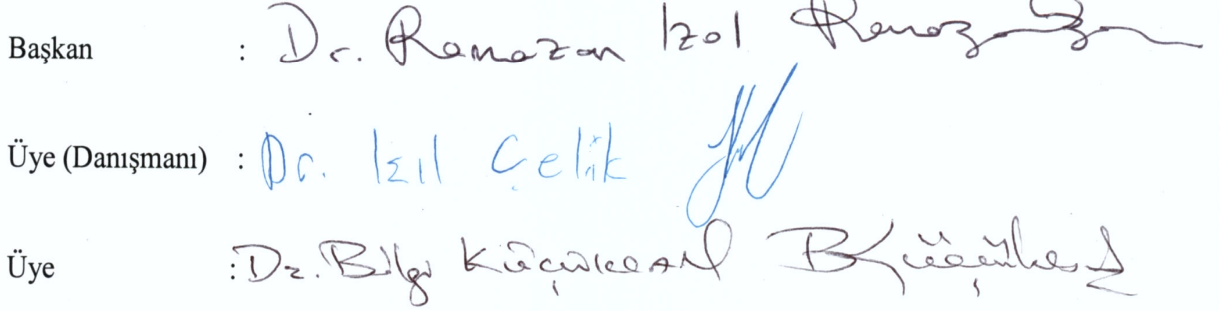 Başkan : Dr. Ramazan Izol
Üye (Danışmanı) : Dr. Izıl Çelik
Üye : Dr. Bilgi Küçükcan